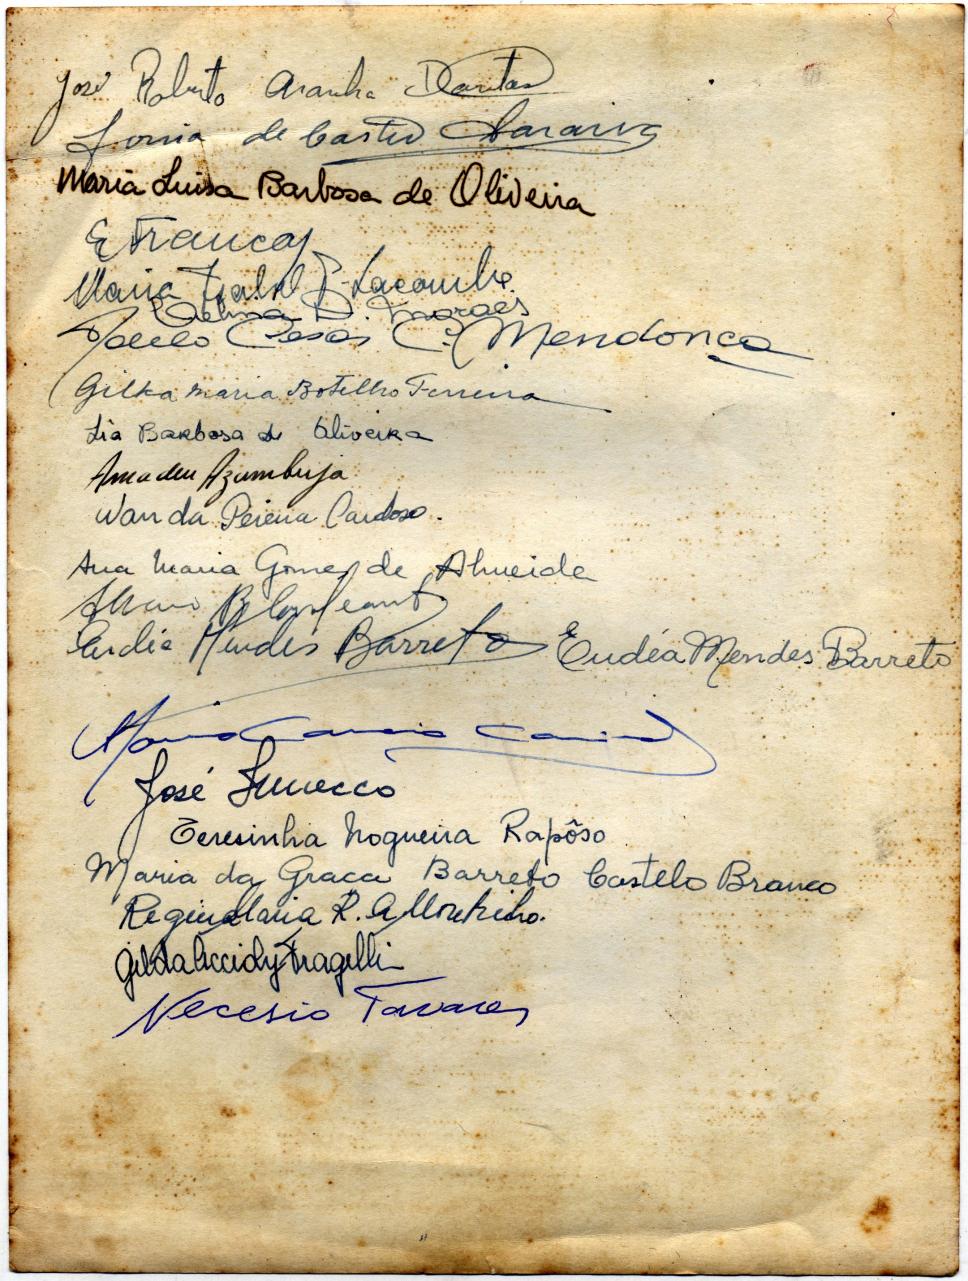 José Roberto Aranha Dantas
Sonia de Castro Saraiva
Maria Luisa Barbosa de Oliveira
E Franca
Maria Isabel J. Lacombe
D. Moraes
Paulo Cesar C. Mendonça
Gilka Maria Botelho Ferreira
Lia Barbosa de Oliveira
Amadeu Azambuja
Wanda Pereira Cardoso.
Ana Maria Gomes de Almeida
Eudéa Mendes Barreto Eudéa Mendes Barreto
Maria
José Simecco
Teresinha Nogueira Rapôso
Maria da Graca Barreto Castelo Branco
Regina Maria R. A. Moutinho.
Gilda Accioly Fragelli
Necesio Tavares